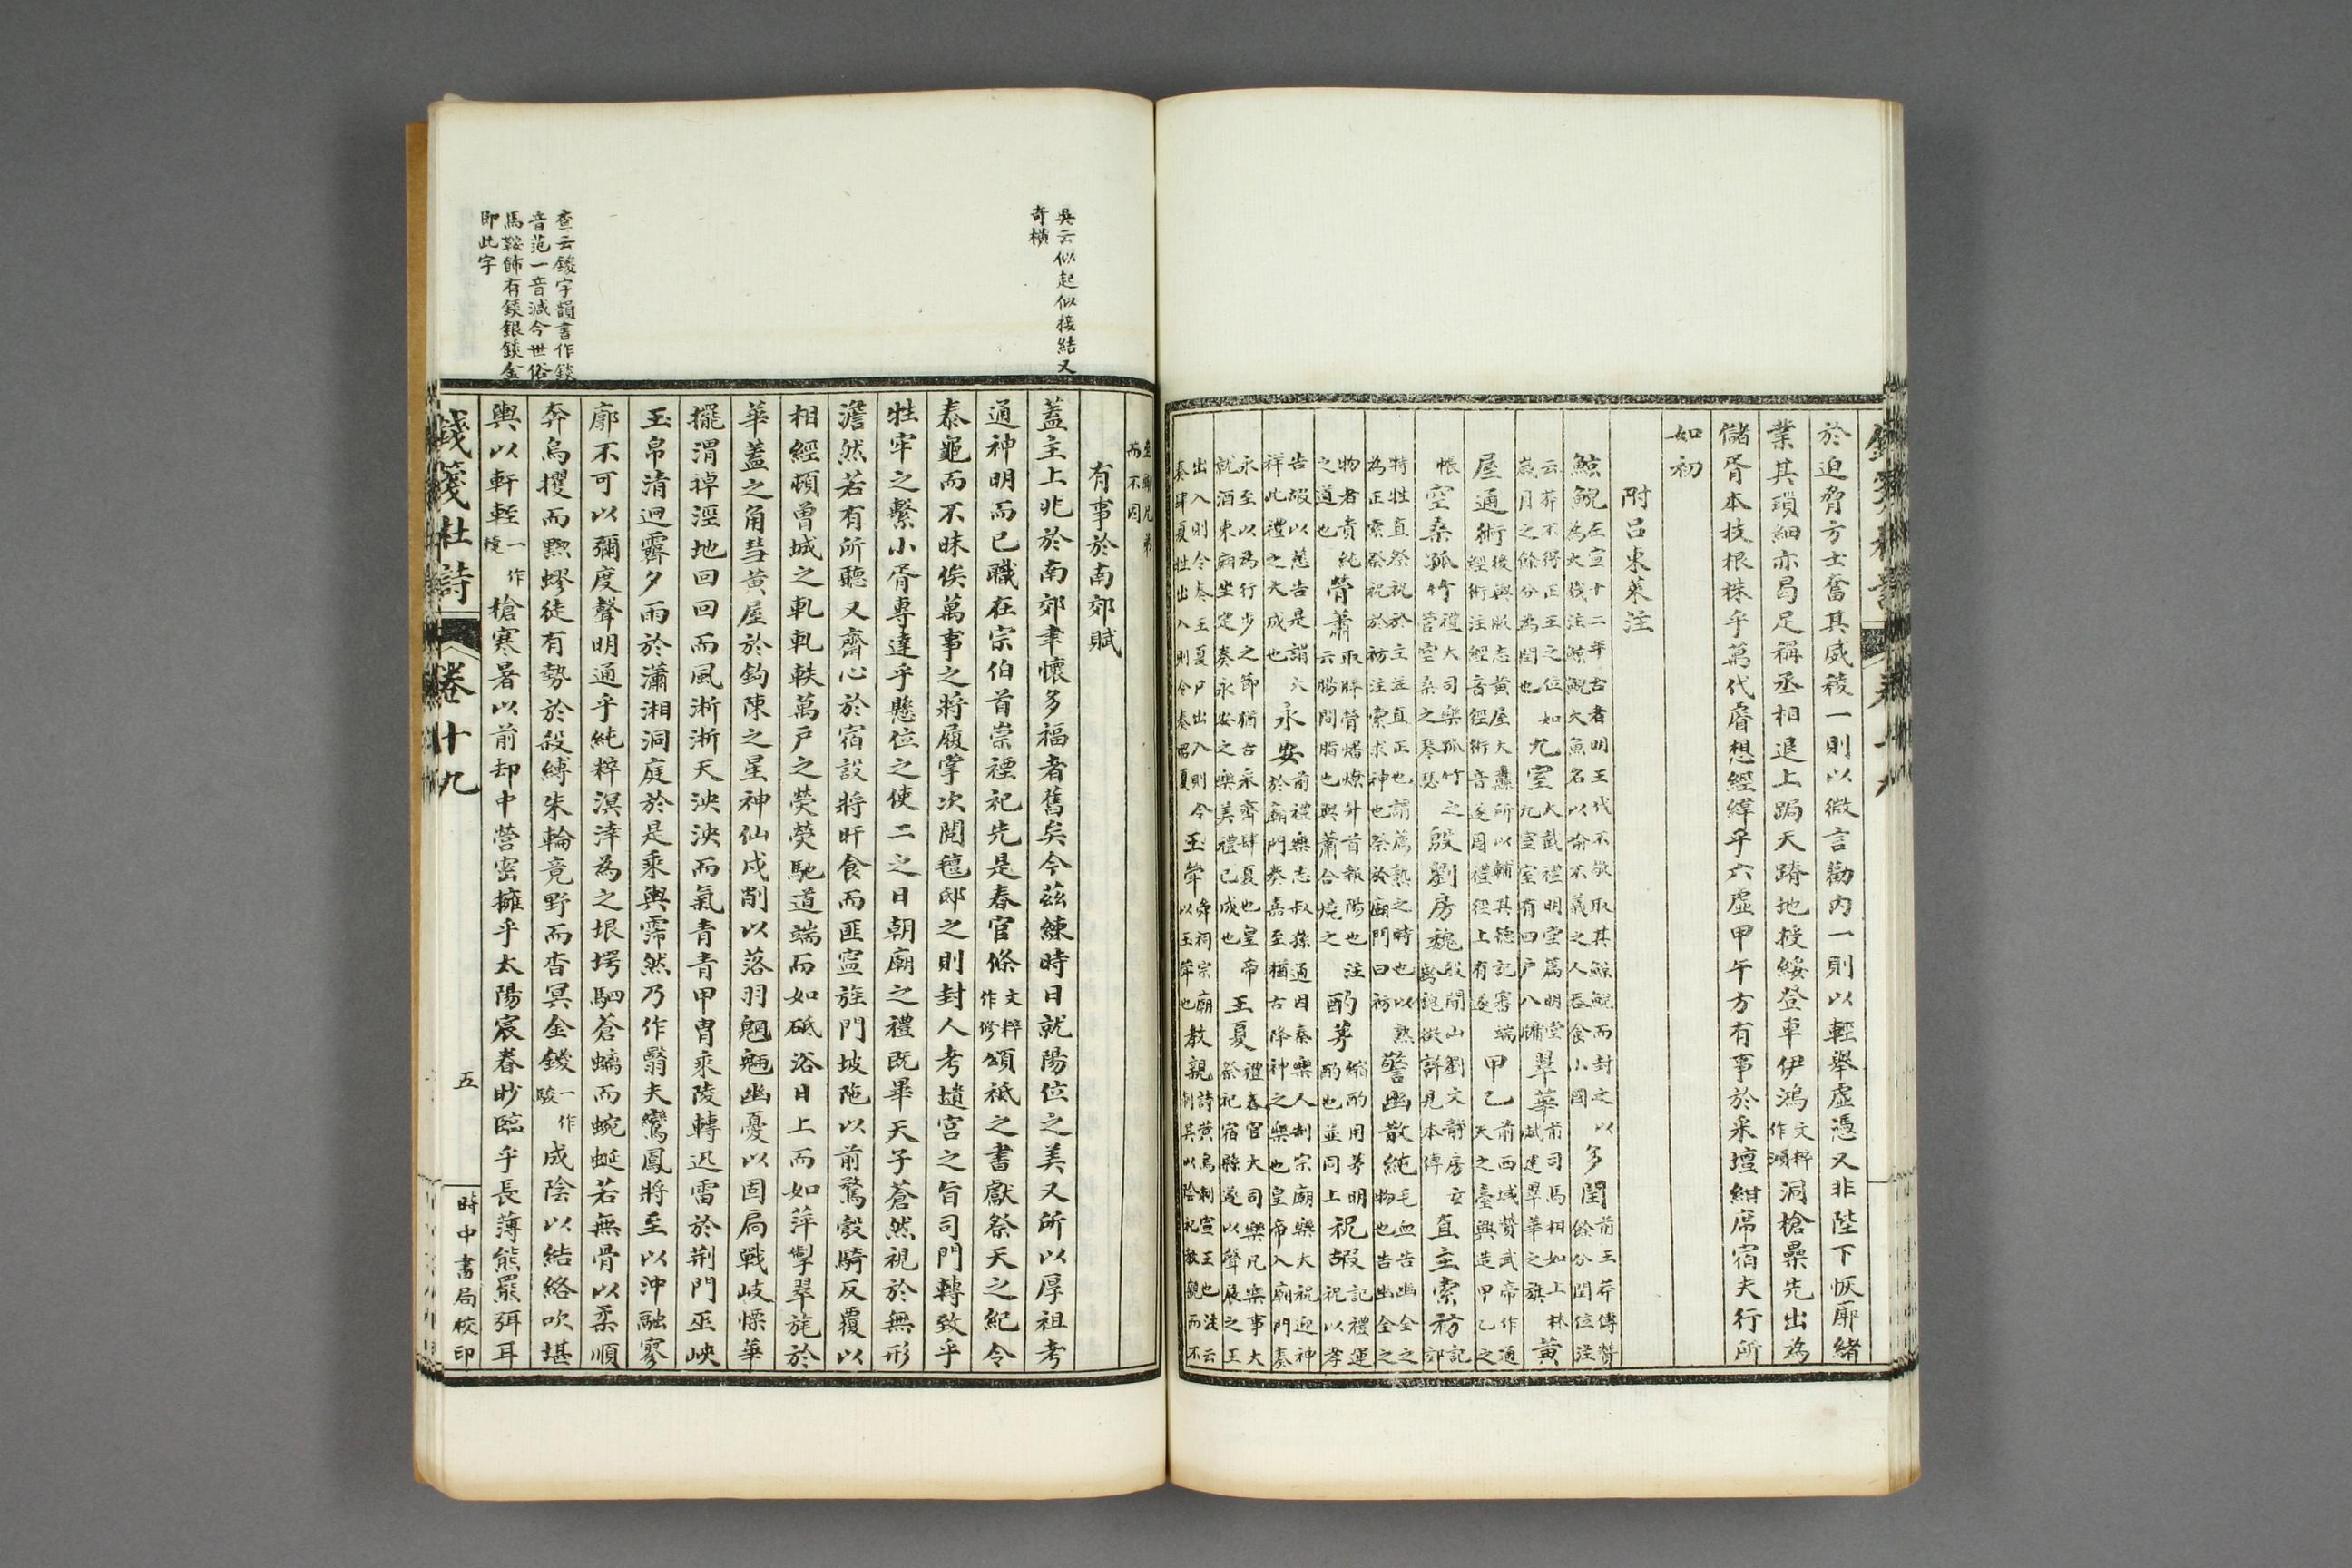 於迫脅方士奮其威稜一則以微言勸內一則以輕舉虛憑又非陛下恢廓緒
業其瑣細亦曷足稱丞相退上跼天蹐地授綏登車伊鴻文粹作澒洞槍纍先出為
儲胥本枝根株乎萬代睿想經緯乎六虛甲午方有事於采壇紺席宿夫行所
如初
附呂東萊注
鯨鯢左宣十二年古者明王代不敬取其鯨鯢而封之以
為大戮注鯨鯢大魚名以喻不義之人吞食小國多閏前王莽傳贊
餘分閏位注
云莽不得正王之位如
歲月之餘分為閏也九室大戴禮明堂篇明堂
九室室有四戶八牖翠華前司馬相如上林
賦建翠華之旗黃
屋通術後輿服志黃屋大纛所以輔其德記審端
經術注經音徑術音遂周禮徑上有遂甲乙前西域贊武帝作通
天之臺興造甲乙之
帳空桑孤竹禮大司樂孤竹之
管空桑之琴瑟殷劉房魏殷開山劉文靜房玄
齡魏徵詳見本傳直主索祊郊記
特牲直祭祝於主注直正也謂薦熟之時也以熟
為正索祭祝於祊注索求神也祭於廟門曰祊警幽散純毛血告幽全之
物也告幽全之
物者貴純
之道也膋蕭取膟膋燔燎升首報陽也注
云腸間脂也與蕭合燒之酌茅縮酌用茅明
酌也並同上祝嘏記禮運
祝以孝
告嘏以慈告是謂大
祥此禮之大成也永安前禮樂志叔孫通因秦樂人制宗廟樂大祝迎神
於廟門奏嘉至猶古降神之樂也皇帝入廟門奏
永至以為行步之節猶古采齊肆夏也皇帝
就酒東廂坐定奏永安之樂美禮已成也王夏禮春官大司樂凡樂事大
祭祀宿縣遂以聲展之王
出入則令奏王夏尸出入則令
奏肆夏牲出入則令奏昭夏玉
而不因
有事於南郊賦
蓋主上兆於南郊聿懷多福者舊矣今茲練時日就陽位之美又所以厚祖考
通神明而已職在宗伯首崇禋祀先是春官條文粹作修頌祗之書獻祭天之紀令
泰龜而不昧俟萬事之將履掌次閱氈邸之則封人考壝宮之旨司門轉致乎
牲牢之繫小胥專達乎懸位之使二之日朝廟之禮既畢天子蒼然視於無形
澹然若有所聽又齊心於宿設將旰食而匪寧旌門坡陁以前騖彀騎反覆以
相經頓曾城之軋軋軼萬戶之熒熒馳道端而如砥浴日上而如萍掣翠旄於
華蓋之角彗黃屋於鉤陳之星神仙戍削以落羽魍魎幽憂以固扃戰岐慄華
擺渭掉涇地回回而風淅淅天泱泱而氣青青甲胄乘陵轉迅雷於荆門巫峽
玉帛清迥霽夕雨於瀟湘洞庭於是乘輿霈然乃作翳夫鸞鳳將至以沖融寥
廓不可以彌度聲明通乎純粹溟涬為之垠堮駟蒼螭而蜿蜒若無骨以柔順
奔烏攫而黝蟉徒有勢於殺縛朱輪竟野而杳冥金鍐一作鋄成陰以結絡吹堪
輿以軒輊一作槍寒暑以前却中營密擁乎太陽宸眷眇臨乎長薄熊羆弭耳
吳云似起似接結又
奇橫
查云鍐字韻書作錽
音范一音減今世俗
馬鞍飾有錽銀錽金
即此字
錢箋杜詩
卷十九
五
時中書局校印